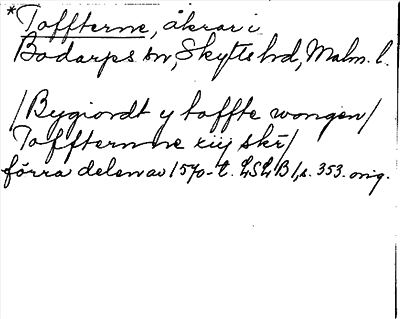 *Toffterne, åkrar i
Bodarps sn, Skytts hd, Malm. l.
/Bygiordt y toffte wongen/
Toffternne xiij skr/
förra delen av 1570-t. LSLB 1, s. 353. orig.